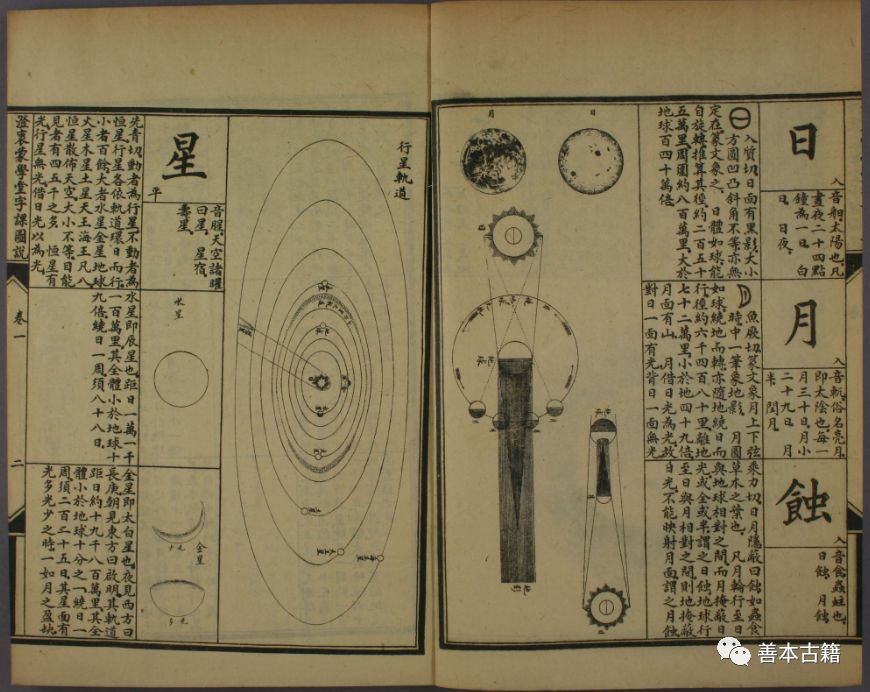 日
入
音馹,太陽也,凡
晝夜二十四點
鐘為一日 白
日 日夜
入質切,日面有黑影,大小
方圓凹凸斜角不等,亦無
定在,篆文象之, 日體如球,能
自旋轉,推算其徑約二百五十
五萬里,周圍約八百萬里,大於
地球百四十萬倍
月
入
音軏,俗名亮月,
即太陰也,每一
月三十日,月小
二十九日 月
半 閏月
魚厥切,篆文象月上下弦
時,中一筆象地影, 月圓
如球,繞地而轉,亦隨地繞日而
行,徑約六千四百八十里,離地
七十二萬里,小於地四十九倍,
月面有山, 月借日光為光,故
對日一面有光,背日一面無光
蝕
入
音食,蟲蛀也,
日蝕 月蝕
乘力切,日月隱蔽曰蝕,如蟲食
草木之葉也, 凡月輪行至日
與地球相對之間,而月掩蔽日
光,或全或半,謂之日蝕,地球行
至日與月相對之間,則地掩蔽
日光,不能映射月面,謂之月蝕
日
月
地球
行星軌道
星
平
音腥,天空諸曜
曰星, 星宿,
壽星,
先青切,動者為行星,不動者為
恒星,行星各依軌道環日而行,
小者百餘,大者水星金星地球
火星木星土星天王海王凡八
恒星散佈天空,大小不等,目能
見者有四五千之多, 恒星有
光,行星無光,借日光以為光,
水星
水星即辰星也,距日一萬一千
一百萬里,其全體小於地球十
九倍,繞日一周須八十八日,
金星
光少
光多
金星即太白星也,夜見西方曰
長庚,朝見東方曰啟明,其軌道
距日約十九千八百萬里,其全
體小於地球十分之一,繞日一
周須二百二十五日,其星面有
光多光少之時,一如月之盈缺
澄衷蒙學堂字課圖說
卷一
二
善本古籍